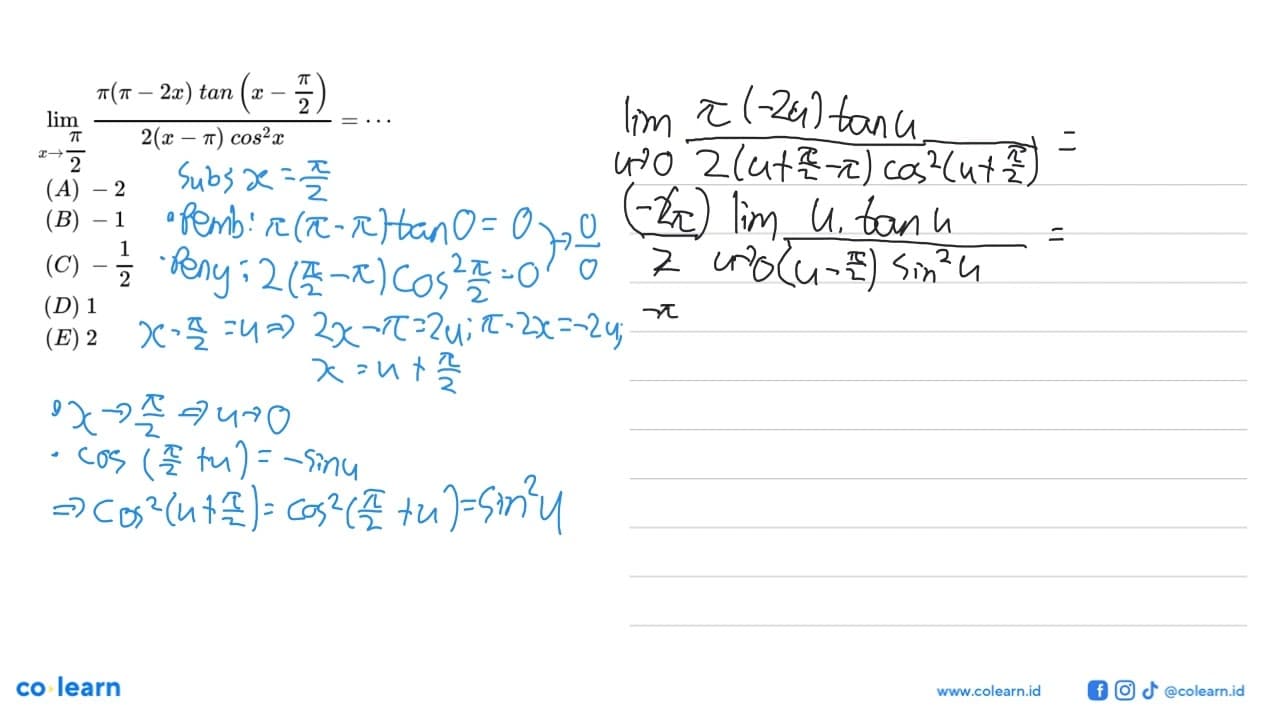 lim x→π/2 π(π − 2x) tan (x − π/2) / 2(x − π) cos²x = ⋯
(A) − 2
(B) − 1
(C) − 1/2
(D) 1
(E) 2
Subs x = π/2
• Pemb: π(π - π) tan 0 = 0
• Peny: 2(π/2 - π) Cos² π/2 = 0
→ 0/0
x - π/2 = u ⇒ 2x - π = 2u; π - 2x = -2u;
x = u + π/2
• x → π/2 ⇒ u → 0
• cos (π/2 + u) = - sin u
⇒ Cos²(u + π/2) = cos²(π/2 + u) = Sin² u
lim u→0 π(-2u) tan u / 2(u + π/2 - π) cos²(u + π/2) =
(-2π)/2 lim u→0 u. tan u / (u - π/2) sin² u =
-π
co learn
www.colearn.id
@colearn.id